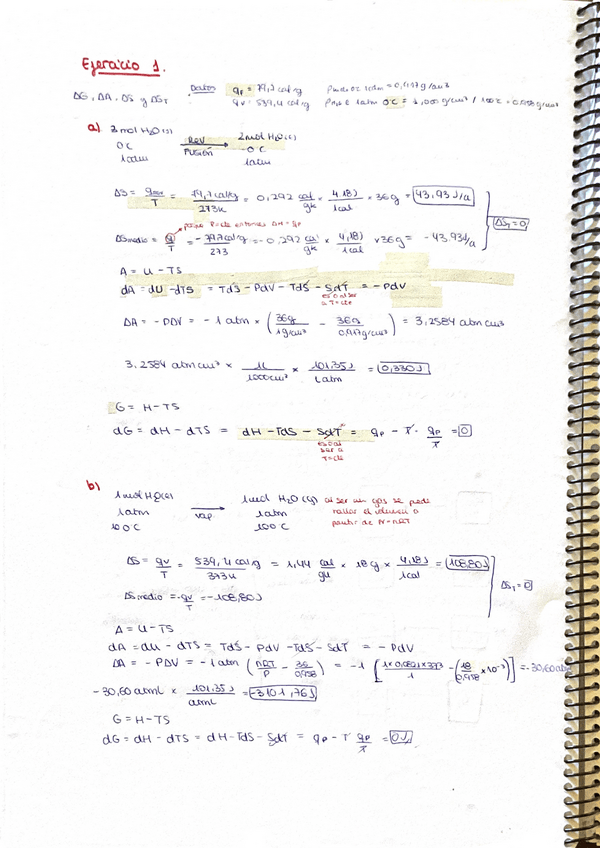 Ejercicio 1.
ΔG, ΔA, ΔS y ΔS_T Datos q_f = 79,7 cal/g ρ_hielo 0C 1atm = 0,917 g/cm³
q_v = 539,4 cal/g 1atm 0C = 1,000 g/cm³ / 100C = 0,958 g/cm³
a) 2mol H₂O(s) Rev 2mol H₂O(l)
0C FUSIÓN 0C
1atm 1atm
ΔS = q/T = 79,7 cal/g / 273K = 0,292 cal/gK × 4,18J/1cal × 36g = 43,93J/K ΔS_T = 0
porque P=cte entonces ΔH = q_p
ΔS medio = q/T = -79,7 cal/g / 273 = -0,292 cal/gK × 4,18J/1cal × 36g = -43,93J/K
A = U - TS
dA = dU - dTS = TdS - PdV - TdS - SdT = -PdV
es 0 al ser
a T=cte
ΔA = -PΔV = -1 atm × (36g / 1g/cm³ - 36g / 0,917g/cm³) = 3,2584 atm cm³
3,2584 atm cm³ × 1L / 1000cm³ × 101,35J / 1atm = 0,330J
G = H - TS
dG = dH - dTS = dH - TdS - SdT = q_p - T · q_p/T = 0
es 0 al
ser a
T=cte
b) 1mol H₂O(l) 1mol H₂O(g) al ser un gas se puede
1atm vap 1atm hallar el volumen a
100C 100C partir de PV=nRT
ΔS = q_v/T = 539,4 cal/g / 373K = 1,44 cal/gK × 18g × 4,18J/1cal = 108,80J ΔS_T = 0
ΔS medio = -q_v/T = -108,80J
A = U - TS
dA = dU - dTS = TdS - PdV - TdS - SdT = -PdV
ΔA = -PΔV = -1 atm (nRT/P - 36/0,958) = -1 [1×0,082×373/1 - (18/0,958 × 10⁻³)] = -30,60 atm
-30,60 atmL × 101,35J / atmL = -3101,76J
G = H - TS
dG = dH - dTS = dH - TdS - SdT = q_p - T q_p/T = 0J